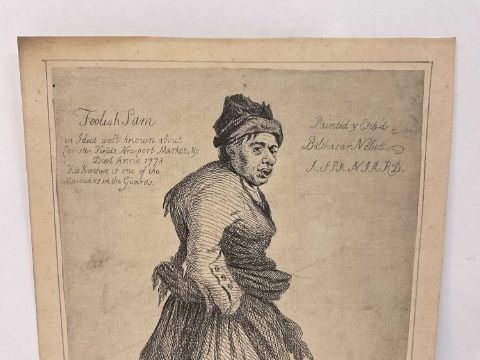 Foolish Sam
an Ideot well known about
Leicester Fields, Newport Market, &c
Died Anno 1773
His Brother is one of the
Musicians in the Guards.
Painted & Etch'd
Balthazar Nebot
A SPANIARD.